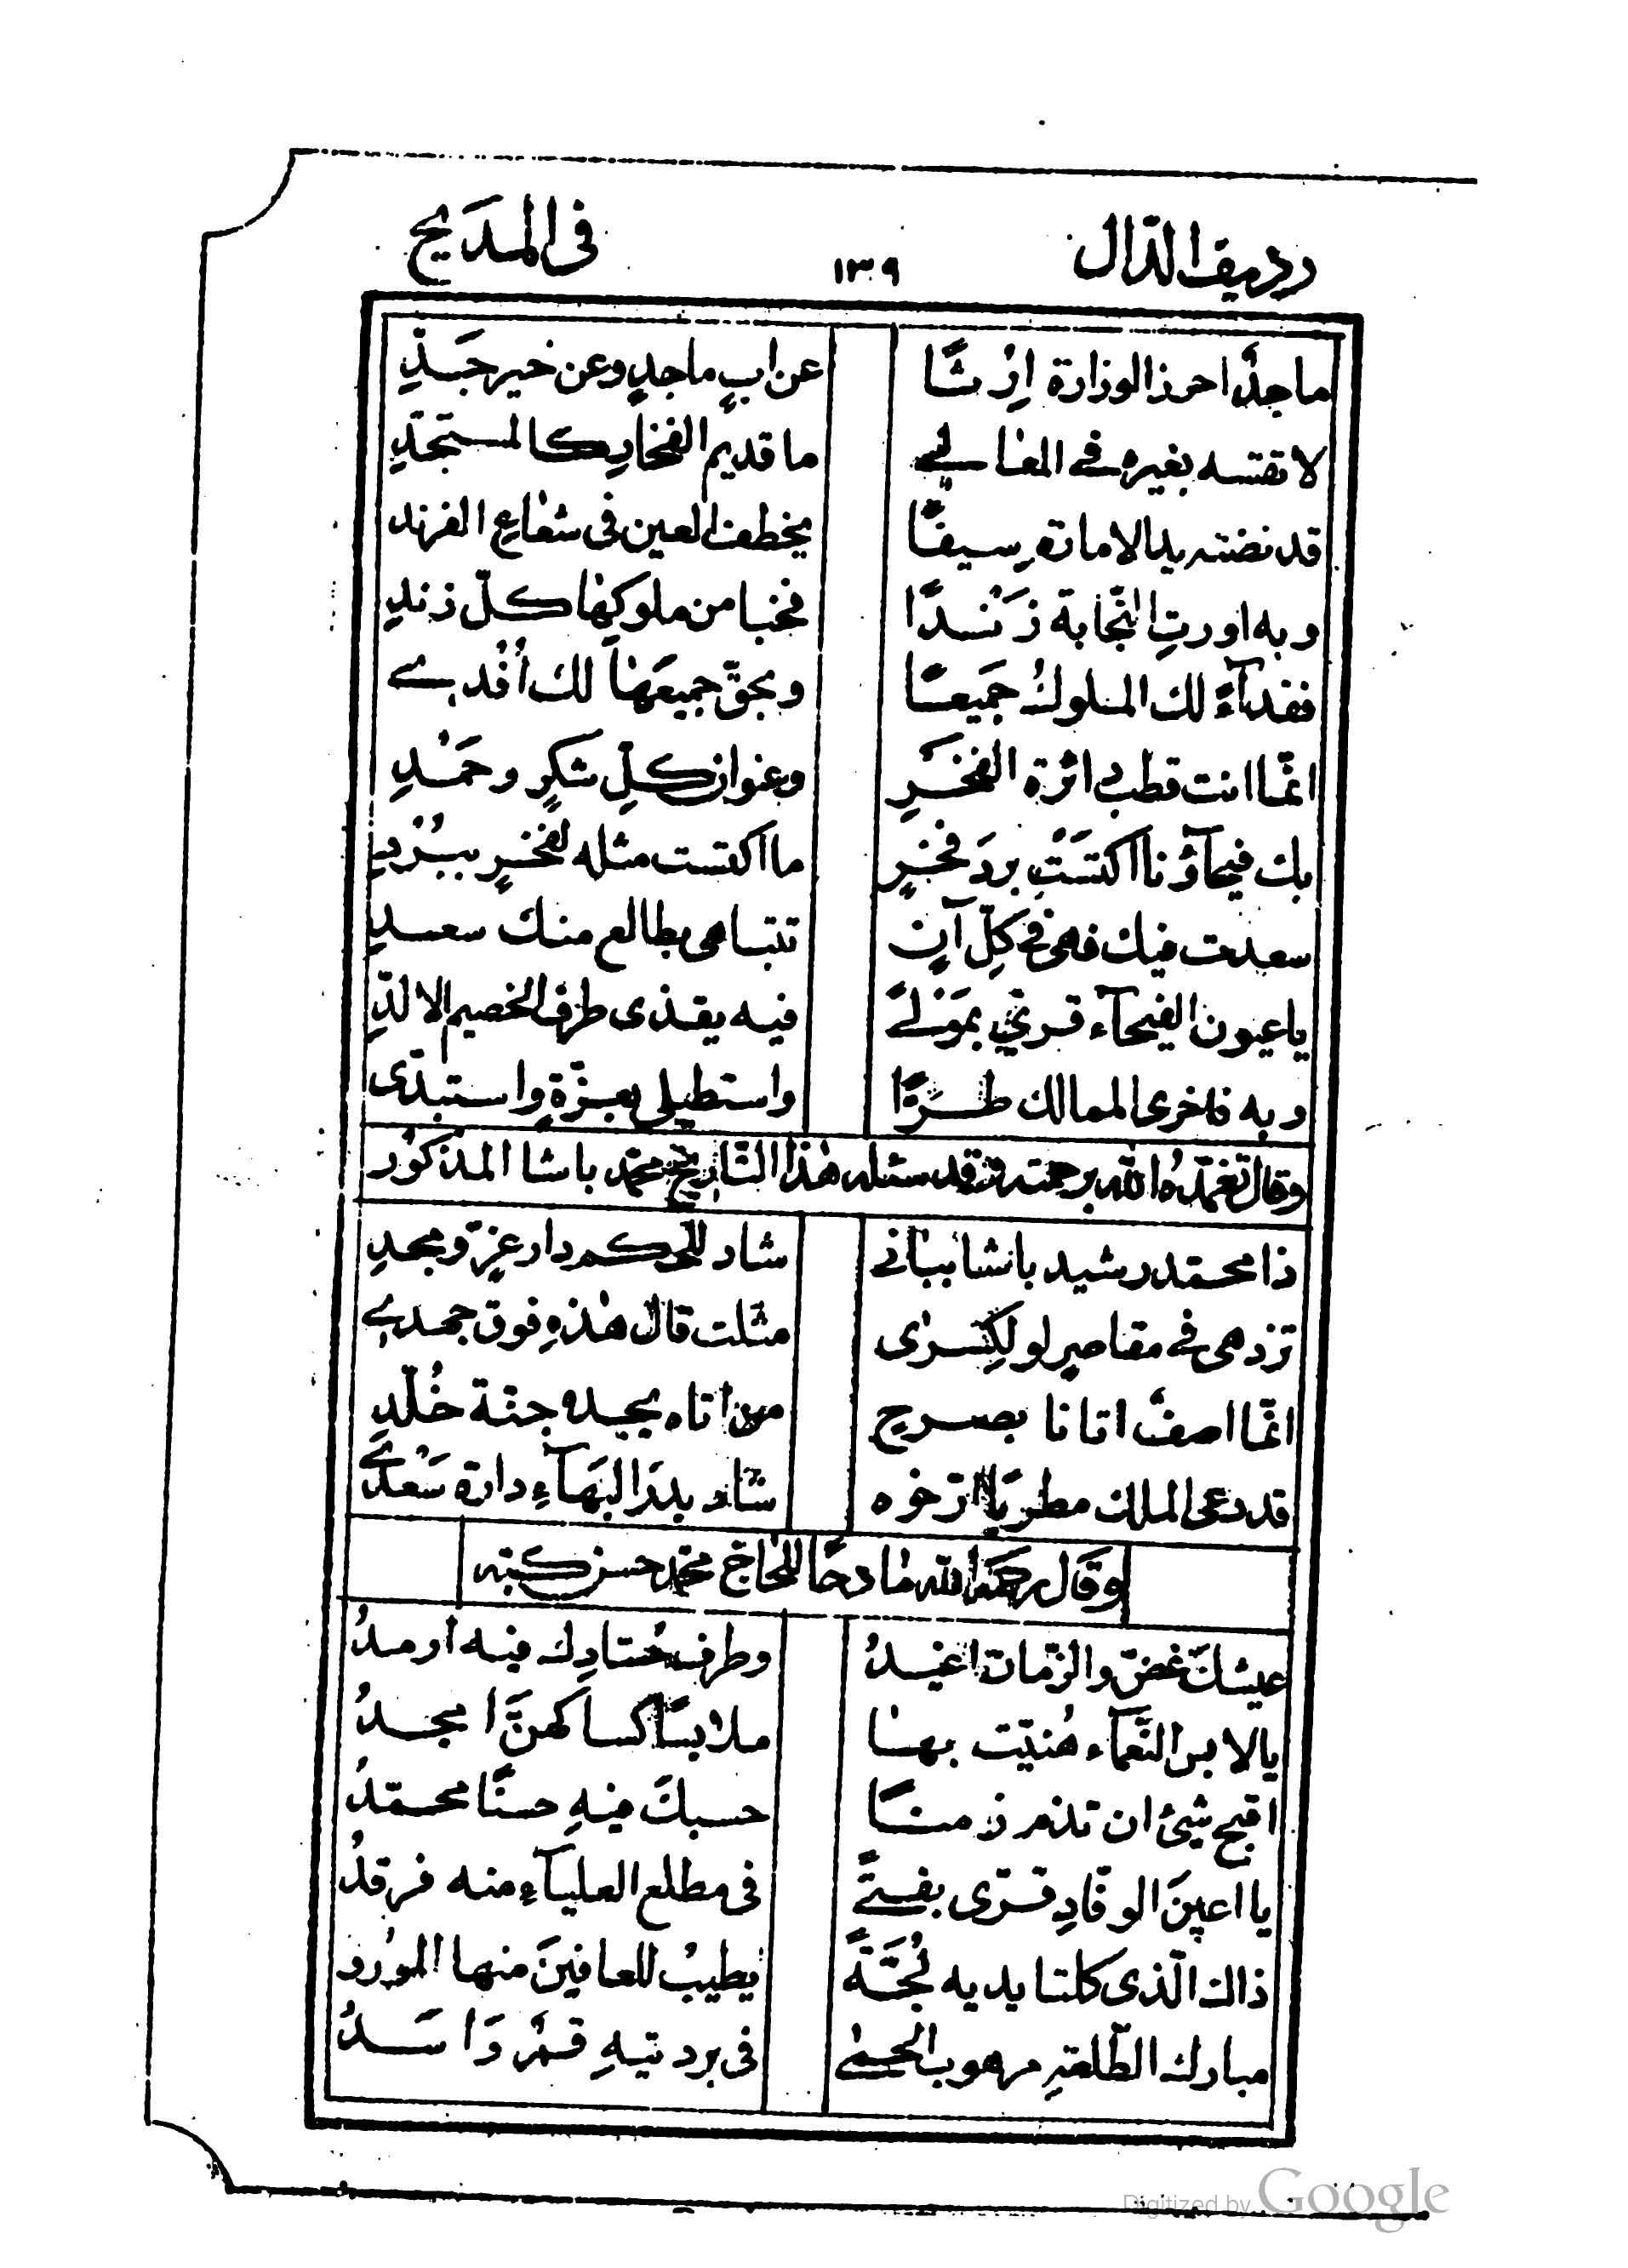 ردیف الدّال ١٣٩ فی المدَیح
ماجدٌ احرز الوزارة اِرْثًا عن ابٍ ماجدٍ وعن خیر جَدِّ
لا تقسه بغیره فے المعالےے ما قدیم الفخارِ کالمستجَدِّ
قد نضته ید الامامة سیفًا یخطف العین فی شعاع الفرند
وبه اورتِ النّجابة زَنْدًا فخبا من ملوکها کلّ زندِ
ففدآءً لك الملوكُ جَمیعًا وبحقّ جمیعَها لك اُفْدےِ
انّما انت قطب دائرة الفخرِ وعنوان کلِّ شکرٍ وحَمْدِ
بك فیحآؤنا اکتسَتْ بردَ فخرٍ ما اکتست مثله لفخرٍ ببُرْدِ
سعدت فیك فهی فی کلِّ آنٍ تتباهی بطالع منك سعدِ
یاعیون الفیحآء قرّی بمَوْلےً فیه یقذی طرف الخصیم الالدِّ
وبه فاخری الممالك طرًّا واستطیلی بعزّةٍ واستبدّی
وقال تغمّدهُ الله برحمته وقد سئله هذا التّاریخ محمّد باشا المذکوُر
ذا محمّد رشید باشا ببانے شاد للحکم دار عزٍّ ومجدِ
تزدهی فے مقاصیرٍ لو لکِسْری مثّلت قال هذهِ فوق جهدےِ
انّما اصفٌ اتانا بصرحٍ من اتاه یجده جنّة خُلْدِ
قد دعی الملك مطربًا ارّخوه شاد بدرَ البَهآءِ دارة سَعْدےِ
وقال رحمَهُ الله مٰادحًا للحٰاج محمّد حسن کبّه
عیشك غضّ والزّمان اغیدُ وطرف حُسّادِك فیه ارمدُ
یالابس النّعمآء هُنّیت بها ملابسًا کساکهنَّ امجدُ
اقبح شئ ان تذم زمنًا حسبكَ فیهِ حسنًا محمّدُ
یا اعینَ الوفّادِ قرّی بفتےً فی مطلع العلیآءِ منه فرقدُ
ذاك الّذی کلتا یدیه لُجَّةً یطیبُ للعافینَ منها المورُد
مبارك الطّلعةِ مرهوب الحمےٰ فی بردتیهِ قمرٌ وَاسَدُ
Digitized by Google